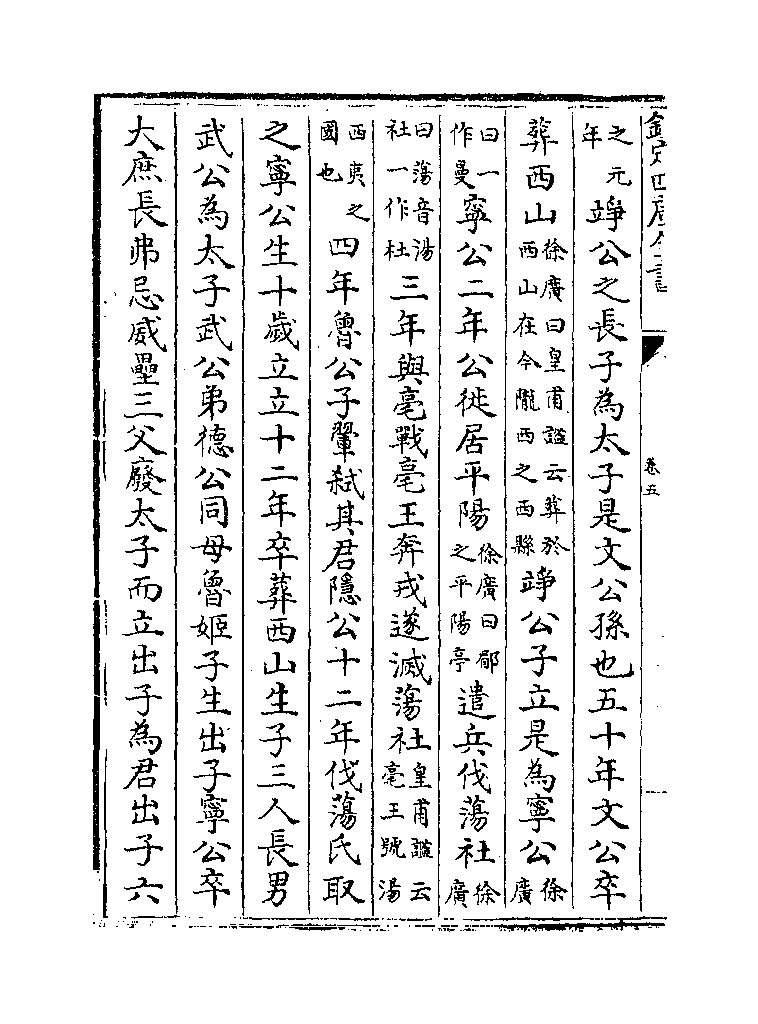 欽定四庫全書 卷五
之元年竫公之長子為太子是文公孫也五十年文公卒
葬西山徐廣曰皇甫謐云葬於西山在今隴西之西縣竫公子立是為寧公徐廣
曰一作曼寧公二年公徙居平陽徐廣曰郿之平陽亭遣兵伐蕩社徐廣
曰蕩音湯社一作杜三年與亳戰亳王奔戎遂滅蕩社皇甫謐云亳王號湯
西夷之國也四年魯公子翬弑其君隱公十二年伐蕩氏取
之寧公生十歲立立十二年卒葬西山生子三人長男
武公為太子武公弟德公同母魯姬子生出子寧公卒
大庶長弗忌威壘三父廢太子而立出子為君出子六